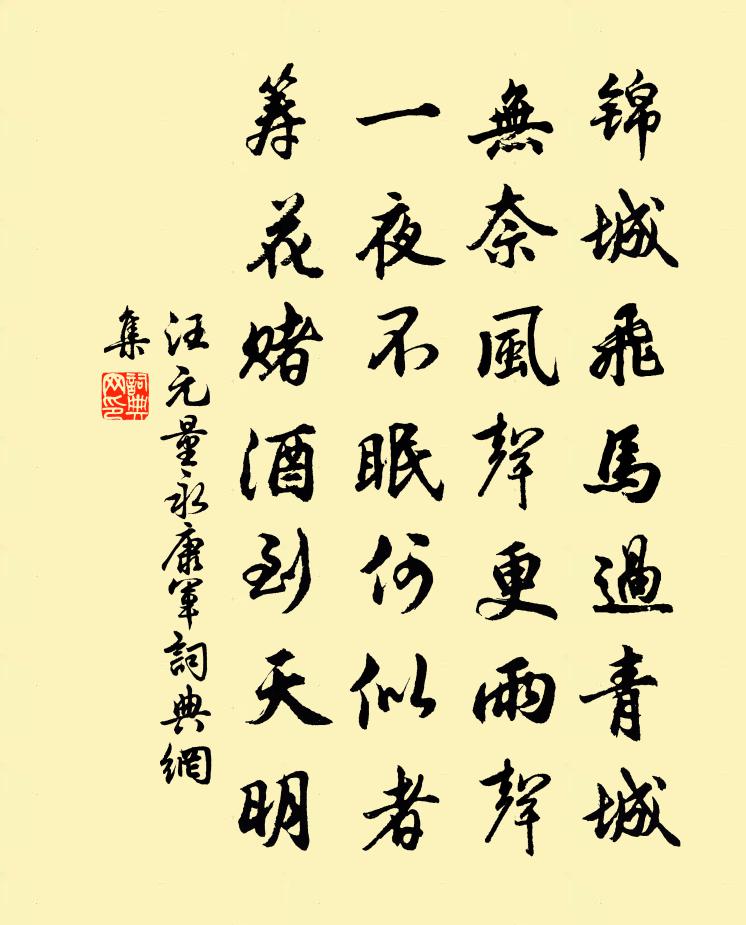 錦城飛馬過青城
無奈風聲更雨聲
一夜不眠何似者
籌花賭酒到天明
汪元量永康軍詞典網
集
詞典网印